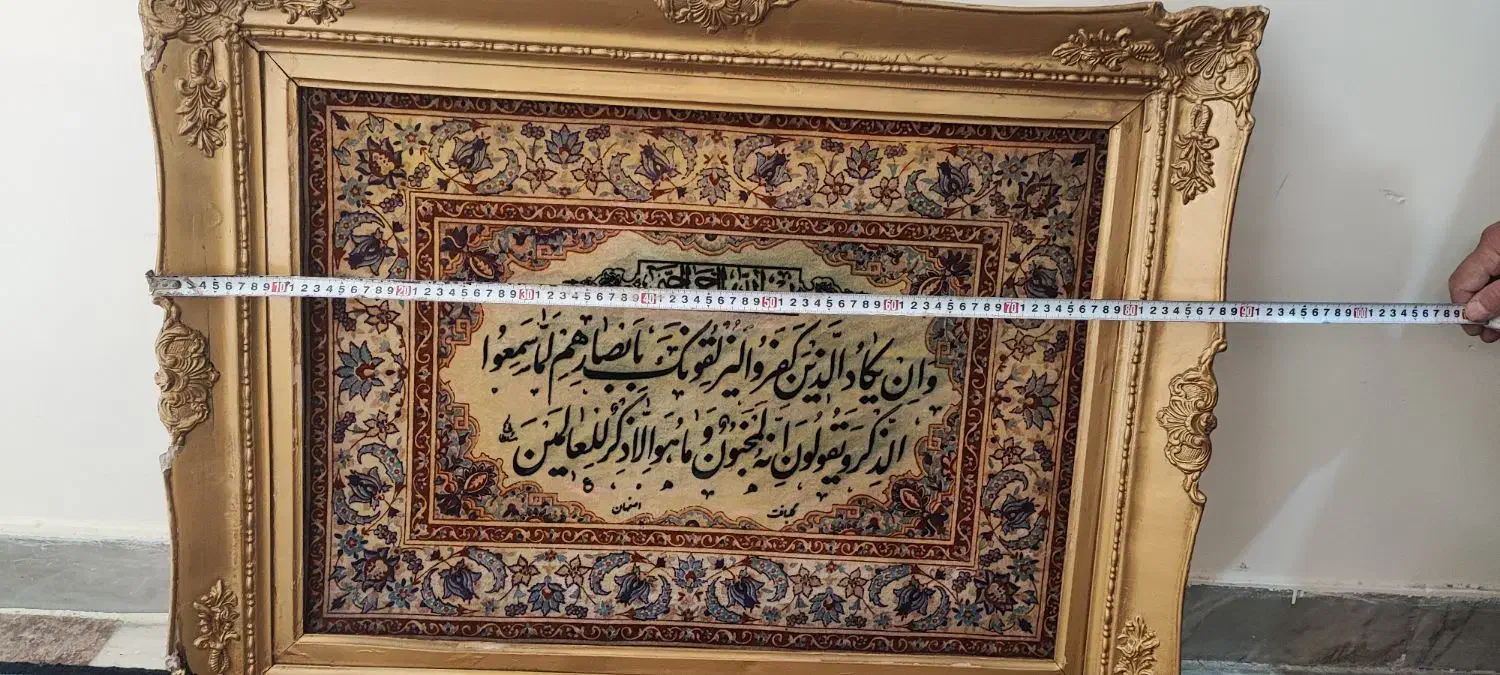 4 5 6 7 8 9 10 1 2 3 4 5 6 7 8 9 20 1 2 3 4 5 6 7 8 9 30 1 2 3 4 5 6 7 8 9 40 1 2 3 4 5 6 7 8 9 50 1 2 3 4 5 6 7 8 9 60 1 2 3 4 5 6 7 8 9 70 1 2 3 4 5 6 7 8 9 80 1 2 3 4 5 6 7 8 9 90 1 2 3 4 5 6 7 8 9 100 1 2 3 4 5 6 7 8 9
وَاِن يَكادُ الَّذينَ كَفَروُا لَيُزلِقُونَكَ بِاَبصارِهِم لَمّا سَمِعُوا
الذِّكرَ وَيَقُولُونَ اِنَّهُ لَمَجنُونٌ وَ ما هُوَ اِلّا ذِكرٌ لِلعالَمينَ
گلبافت اصفهان